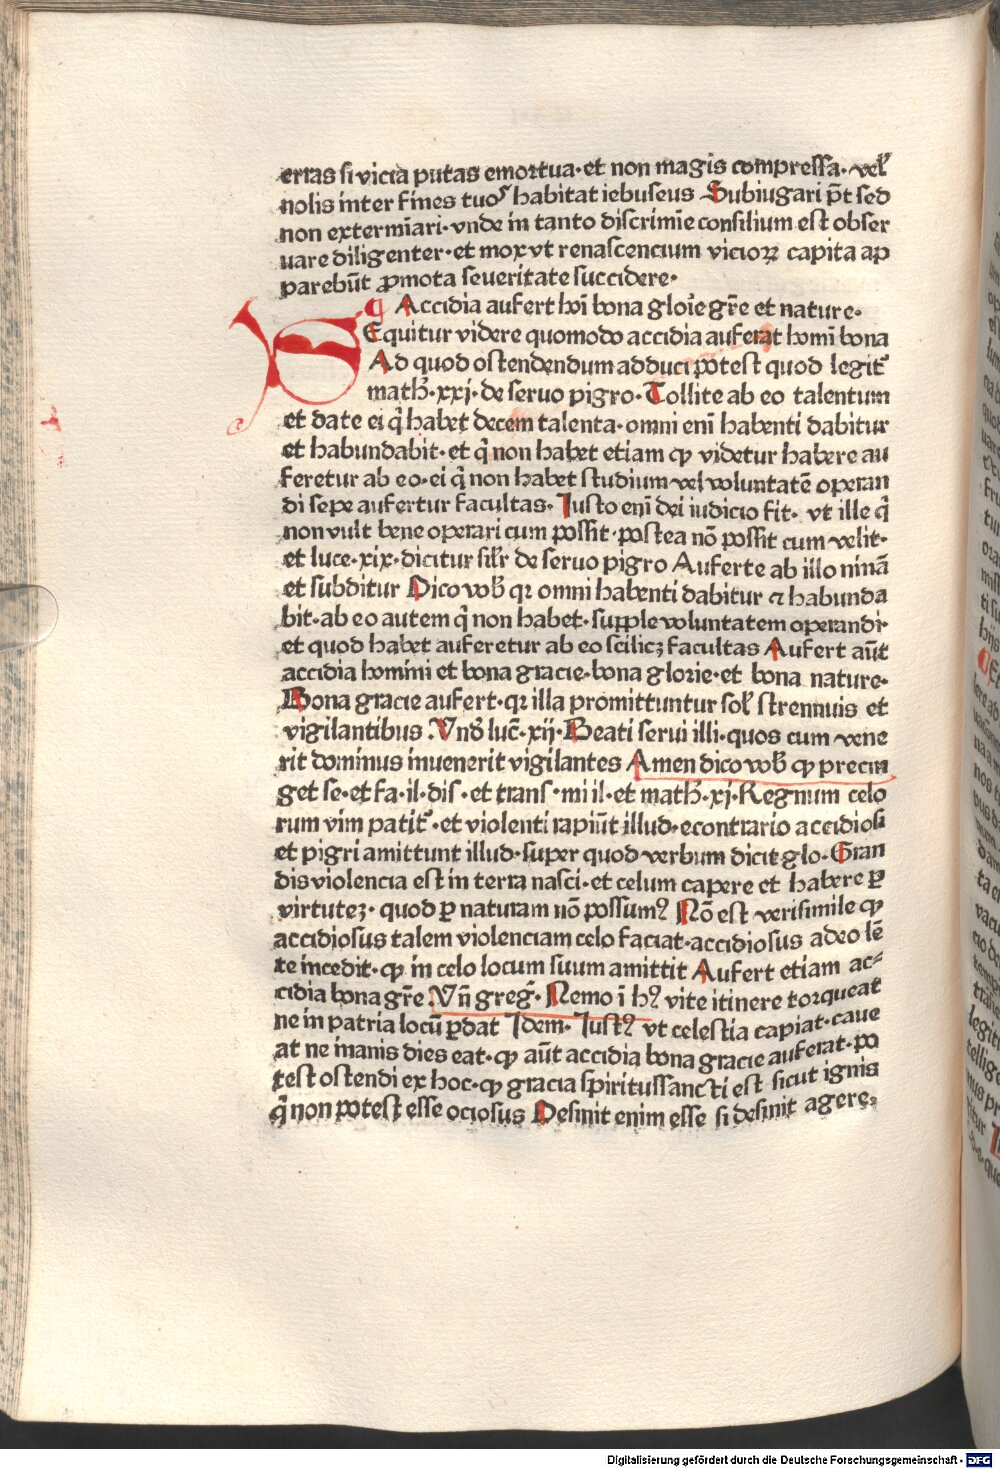 erras si vicia putas emortua·et non magis compressa·vel̛
nolis inter fines tuoſ habitat iebuseus Subiugari p̄t sed
non extermīari·vnde in tanto discrimīe consilium est obser
uare diligenter·et mox vt renascencium vicioꝝ capita ap
parebūt ꝓmota seueritate succidere·
¶ Accidia aufert hoı̄ bona gloı̄e gr̄e et nature·
SEquitur videre quomodo accidia auferat homı̄ bona
Ad quod ostendendum adduci potest quod legit᷑
math̛·xxj·de seruo pigro·Tollite ab eo talentum
et date ei q̄ habet decem talenta·omni enı̄ habenti dabitur
et habundabit·et q̄ non habet etiam ꝙ videtur habere au
feretur ab eo·ei q̄ non habet studium vel voluntatē operan
di sepe aufertur facultas·Iusto enı̄ dei iudicio fit·vt ille q̄
non vult bene operari cum possit·postea nō possit cum velit·
et luce·xix·dicitur sil̛r de seruo pigro Auferte ab illo ninā
et subditur Dico vob̛ qꝛ omni habenti dabitur ⁊ habunda
bit·ab eo autem q̄ non habet·supple voluntatem operandi·
et quod habet auferetur ab eo scilicꝫ facultas Aufert aūt
accidia homini et bona gracie·bona glorie·et bona nature·
Bona gracie aufert·qꝛ illa promittuntur sol̛ strennuis et
vigilantibus Vnd̛ luc̄·xij·Beati serui illi·quos cum vene
rit dominus inuenerit vigilantes Amen dico vob̛ ꝙ precin
get se·et fa·il·dis·et trans·mi il·et math̛·xj·Regnum celo
rum vim patit᷑·et violenti rapiūt illud·econtrario accidiosi
et pigri amittunt illud·super quod verbum dicit glo·Gran
dis violencia est in terra nasci·et celum capere et habere ꝑ
virtuteꝫ·quod ꝑ naturam nō possumꝰ Nō est verisimile ꝙ
accidiosus talem violenciam celo faciat·accidiosus adeo lē
te incedit·ꝙ in celo locum suum amittit Aufert etiam ac⸗
cidia bona gr̄e Vn̄ greg̛·Nemo ı̄ hꝰ vite itinere torqueat
ne in patria locū ꝑdat Idem·Iustꝰ vt celestia capiat·caue
at ne inanis dies eat·ꝙ aūt accidia bona gracie auferat·po
test ostendi ex hoc·ꝙ gracia spiritussancti est sicut ignis
q̄ non potest esse ociosus Desinit enim esse si desinit agere·
Digitalisierung gefördert durch die Deutsche Forschungsgemeinschaft - DFG